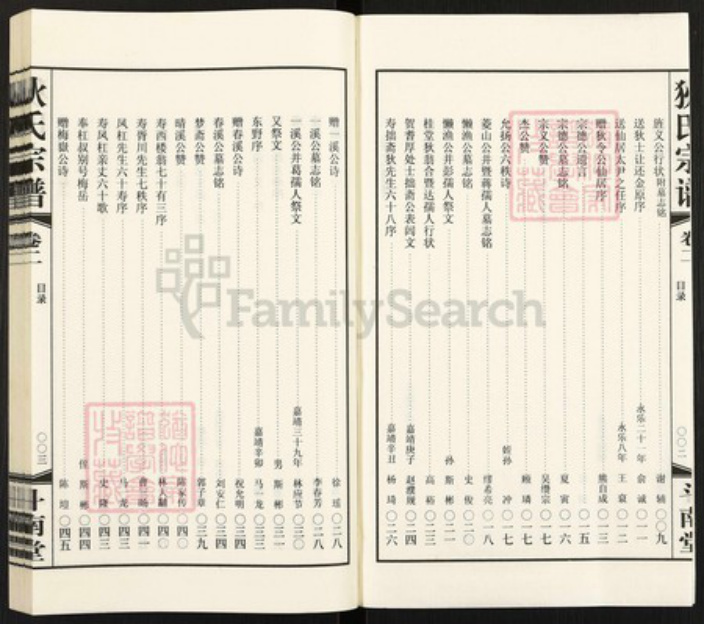 狄氏宗谱
卷二
目录
〇〇二
斗南堂
旌义公行状附墓志铭 谢 辅 〇〇九
送狄士让还金原序 永乐二十一年 俞 诚 〇一一
送仙居太尹之任序 永乐八年 王 裒 〇一二
赠狄令公仙居序 熊自成 〇一三
宗德公遗言 〇一五
宗德公墓志铭 夏 寅 〇一六
宗义公赞 吴继宗 〇一七
杰公赞 顾 璘 〇一七
允扬公六秩诗 侄孙 冲 〇一七
菱山公并暨蒋孺人墓志铭 缪希亮 〇一八
懒渔公墓志铭 史 俊 〇二〇
懒渔公并彭孺人祭文 孙 斯彬 〇二一
桂堂狄翁合暨达孺人行状 高 裕 〇二三
贺耆厚处士拙斋公表闾文 嘉靖庚子 赵 〇二四
寿拙斋狄先生六十八序 嘉靖辛丑 杨 琦 〇二六
赠一溪公诗 徐 瑶 〇二八
一溪公墓志铭 李春芳 〇二八
一溪公并葛孺人祭文 嘉靖三十九年 林应节 〇三〇
又祭文 男 斯彬 〇三一
东野序 嘉靖辛卯 马一龙 〇三三
赠春溪公诗 祝允明 〇三四
春溪公墓志铭 刘安仁 〇三四
梦斋公赞 郭子章 〇三九
晴溪公赞 陈家传 〇四〇
寿西楼翁七十有三序 〇四〇
寿胥川先生七秩序 〇四一
风杠先生六十寿序 马 龙 〇四三
寿风杠亲丈六十歌 史 隆 〇四三
奉杠叔别号梅岳 侄 斯彬 〇四四
赠梅嶽公诗 陈 〇四五
狄氏宗谱
卷二
目录
〇〇三
斗南堂
FamilySearch